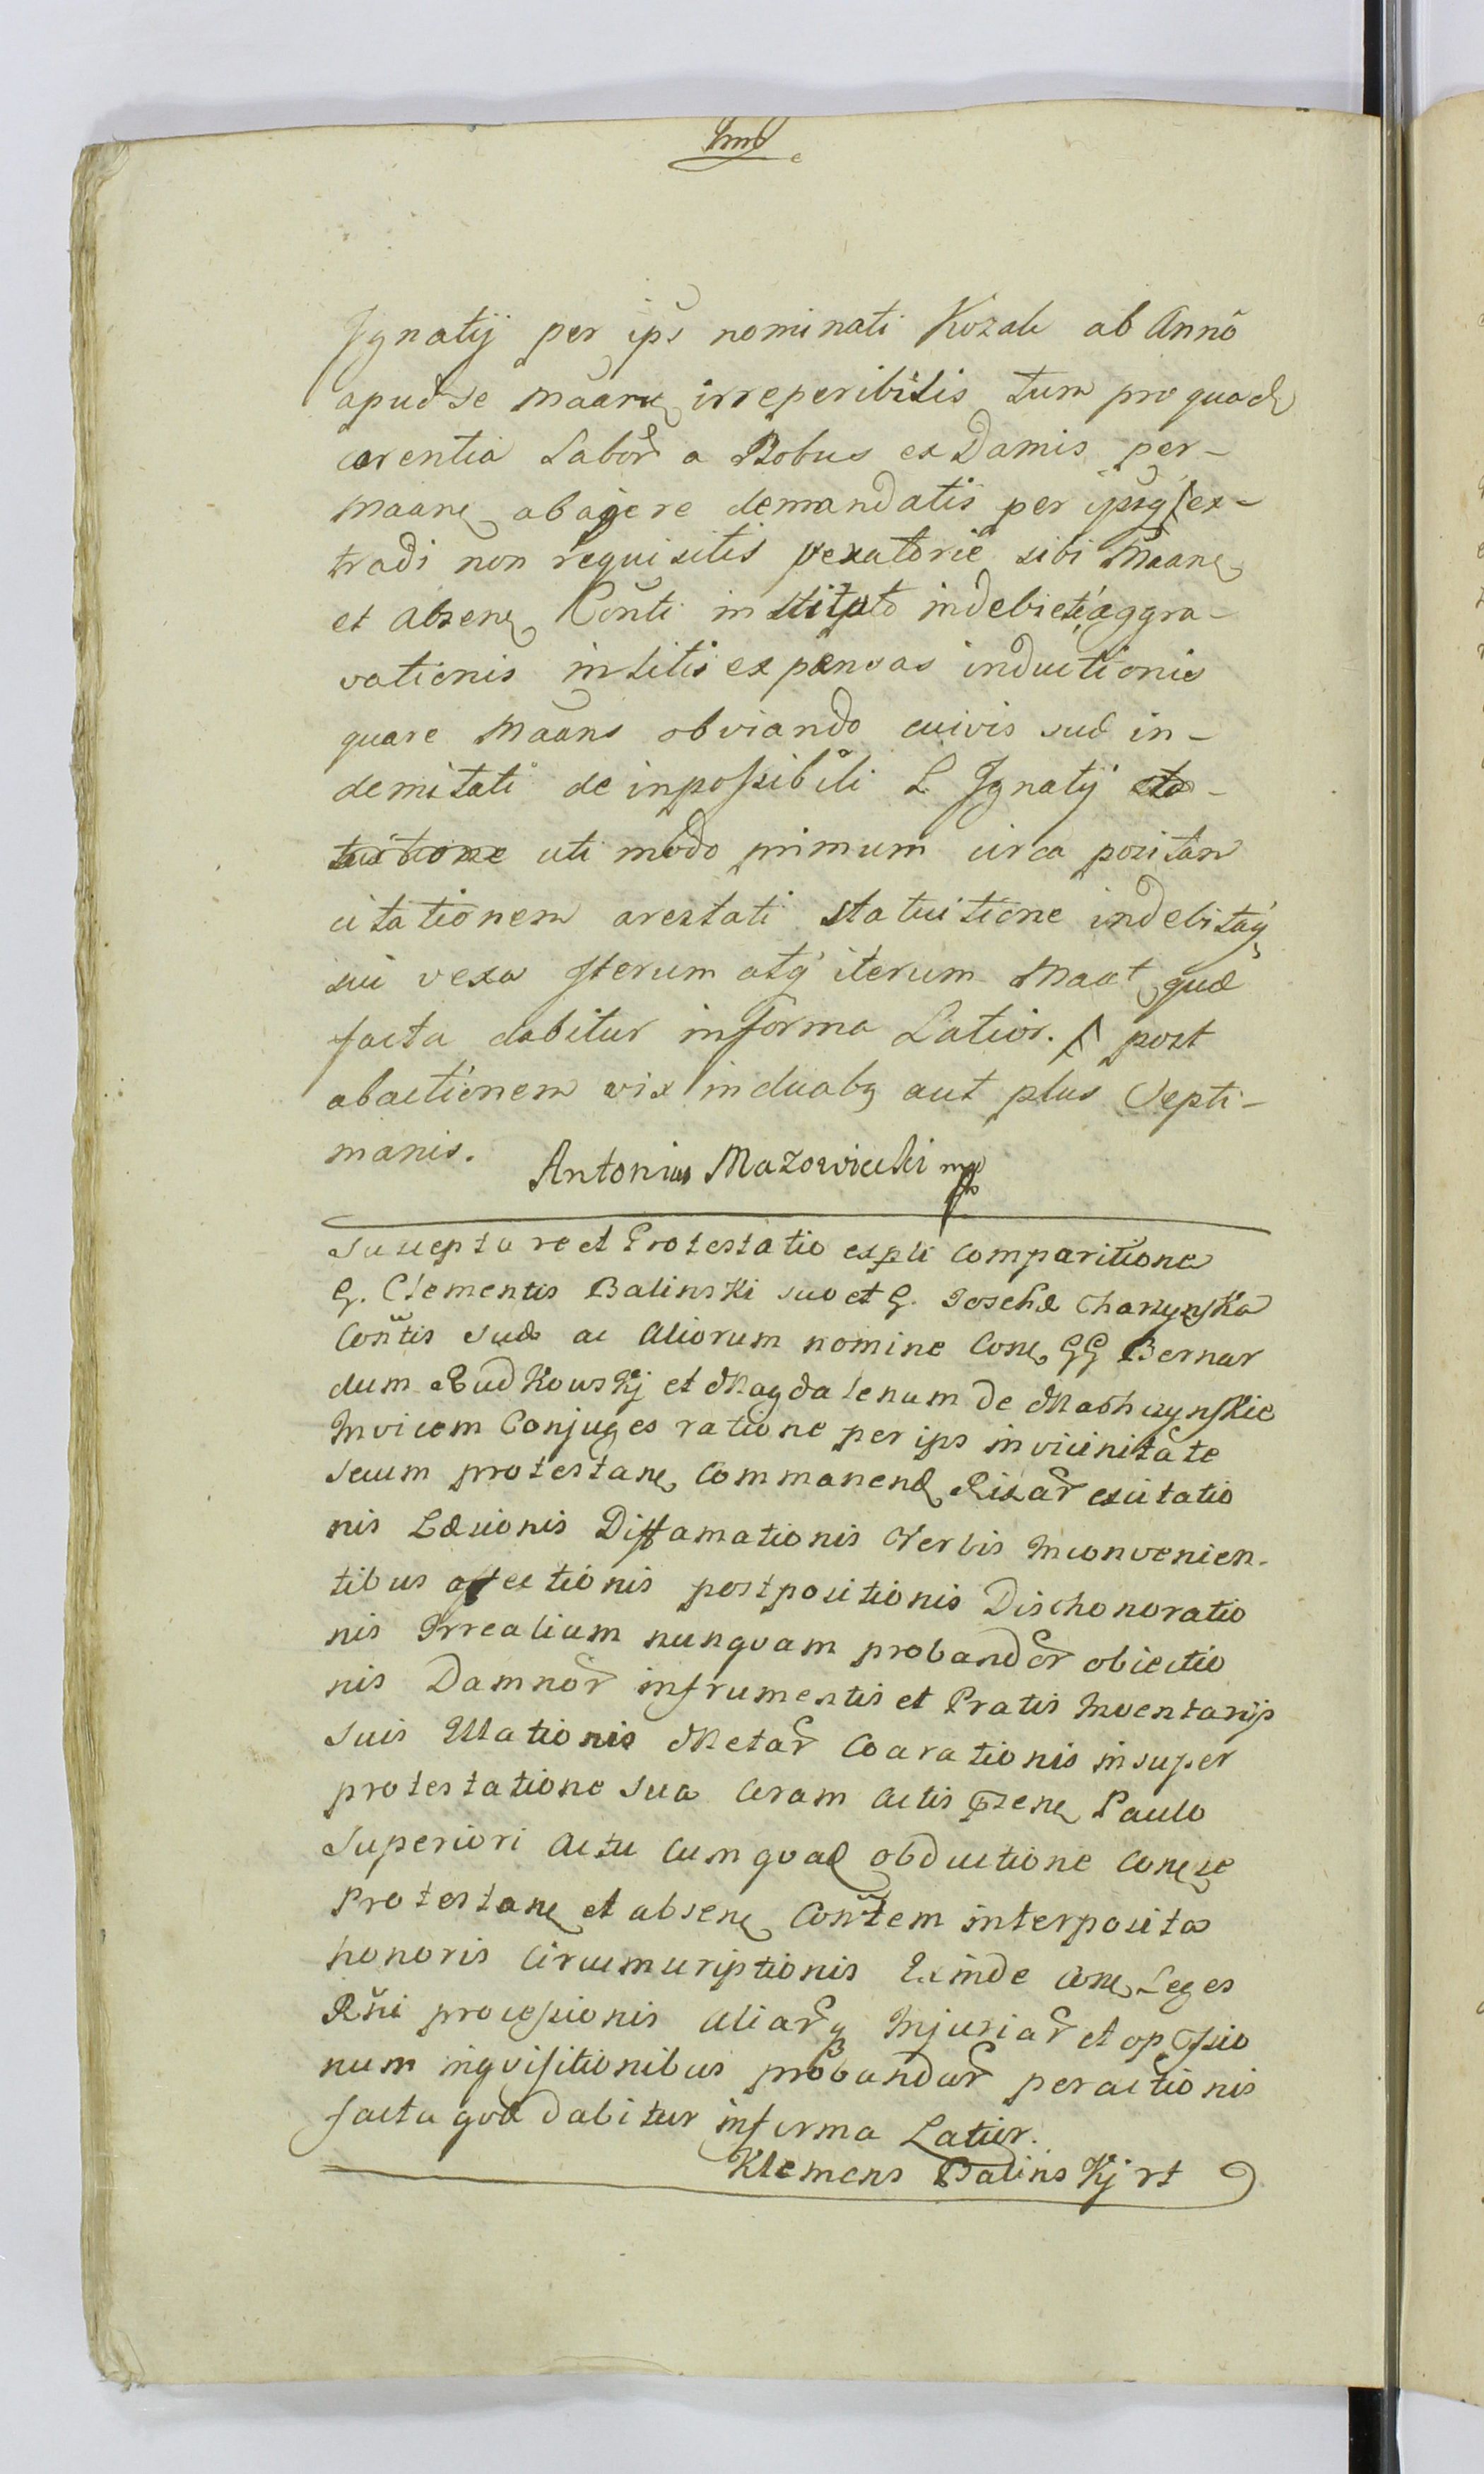 Ignatij per ips nominati Kozak ab Anno
apud se Maane irreperibilis tum pro quad
carentia Labor a Bobus ex Damis per-
Maane abagere demandatis per ipsq ex-
tradi non requisitis vexatorie sibi Maane
et absene Conti instituto indebiete aggra-
vationis in litis expensas inductionis
quare Maans obviando cuivis suæ in-
demitati de inpossibili L Ignatij sta-
tuitione uti modo primum circa positam
citationem arestati statuitione indebitaq
sui vexa Iterum atq iterum Maat quæ
facta dabitur in forma Latior. post
abactionem vix in duabq aut plus Septi-
manis. Antonius Mazowiecki mp
Suscepta re et Protestatio expti comparitione
G. Clementis Balinski suo et G. Josephæ Charzynska
Contis suæ ac Aliorum nomine Cone GG Bernar
dum Rudkowskj et Magdalenam De
Invicem Conjuges ratione per ips in vicinitate
secum protestane Commanend Rixar excitatio
nis Læsionis Diffamationis Verbis Inconvenien-
tibus affectionis postpositionis Dischonoratio
nis Irrealium nunquam probandor obiectio
nis Damnor in frumentis et Pratis Inventarijs
suis Illationis Metar Coarationis insuper
protestatione sua Coram Actis psene Paulo
Superiori Actu Cum quad obductione Cone se
Protestane et absene Contem interposita
honoris Circumscriptionis Exinde Cone Leges
Rni processionis Aliarq Injuriar et oppssio
num inqvisitionibus probandar peractionis
facta qvæ dabitur in forma Latior.
Klemens Balinskj rt